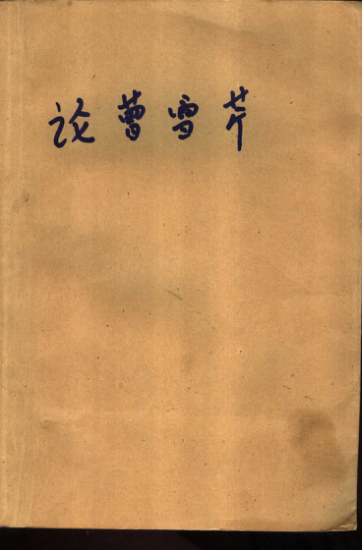 论曹雪芹